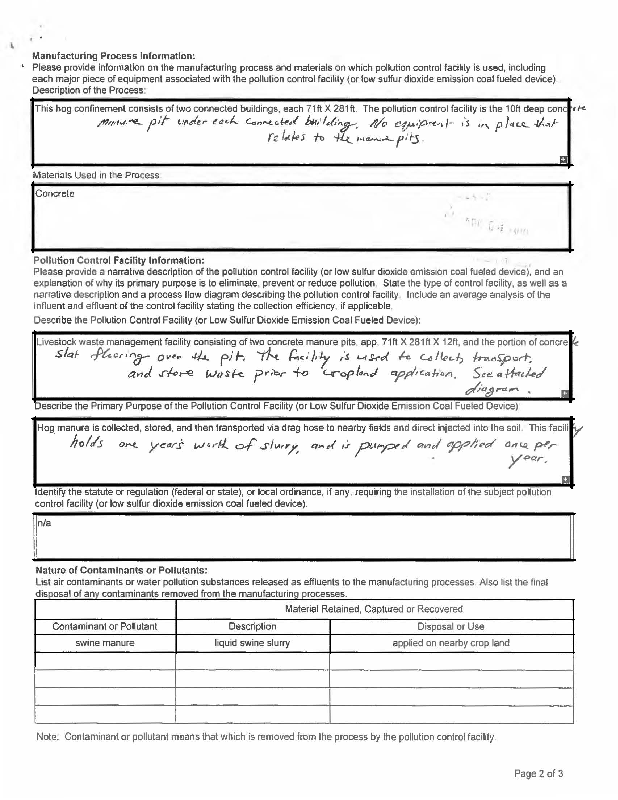 Manufacturing Process Information:
Please provide information on the manufacturing process and materials on which pollution control facility is used, including
each major piece of equipment associated with the pollution control facility (or low sulfur dioxide emission coal fueled device)
Description of the Process:
This hog confinement consists of two connected buildings, each 71ft X 281ft. The pollution control facility is the 10ft deep concrete
manure pit under each connected building. No equipment is in place that
relates to the manure pits.
Materials Used in the Process:
Concrete
Pollution Control Facility Information:
Please provide a narrative description of the pollution control facility (or low sulfur dioxide emission coal fueled device), and an
explanation of why its primary purpose is to eliminate, prevent or reduce pollution. State the type of control facility, as well as a
narrative description and a process flow diagram describing the pollution control facility. Include an average analysis of the
influent and effluent of the control facility stating the collection efficiency, if applicable.
Describe the Pollution Control Facility (or Low Sulfur Dioxide Emission Coal Fueled Device):
Livestock waste management facility consisting of two concrete manure pits, app. 71ft X 281ft X 12ft, and the portion of concrete
slat flooring over the pit. The facility is used to collect, transport,
and store waste prior to cropland application. See attached
diagram.
Describe the Primary Purpose of the Pollution Control Facility (or Low Sulfur Dioxide Emission Coal Fueled Device)
Hog manure is collected, stored, and then transported via drag hose to nearby fields and direct injected into the soil. This facility
holds one years worth of slurry, and is pumped and applied once per
year.
Identify the statute or regulation (federal or state), or local ordinance, if any, requiring the installation of the subject pollution
control facility (or low sulfur dioxide emission coal fueled device).
n/a
Nature of Contaminants or Pollutants:
List air contaminants or water pollution substances released as effluents to the manufacturing processes. Also list the final
disposal of any contaminants removed from the manufacturing processes.
Material Retained, Captured or Recovered
Contaminant or Pollutant Description Disposal or Use
swine manure liquid swine slurry applied on nearby crop land
Note: Contaminant or pollutant means that which is removed from the process by the pollution control facility.
Page 2 of 3